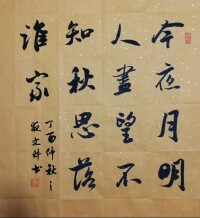 今夜月明
人盡望不
知秋思落
誰家
丁酉仲秋之
文科书